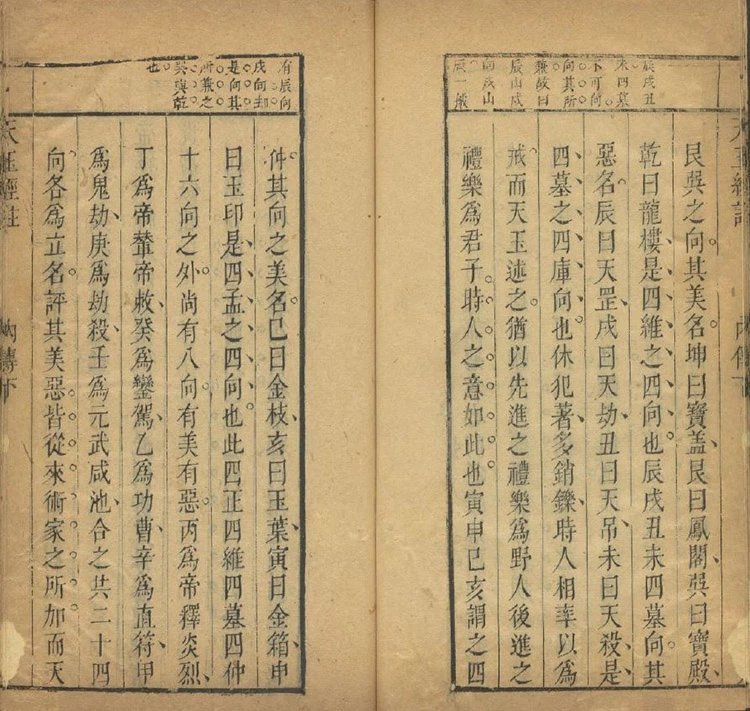 辰戌丑
未四墓
不可向
向其所
兼故曰
辰山戌
向戌山
辰一
艮巽之向。其美名坤曰寶蓋、艮曰鳳閣、巽曰寶殿、
乾曰龍樓、是四維之四向也。辰戌丑未四墓向。其
惡名辰曰天罡、戌曰天劫、丑曰天吊、未曰天殺、是
四墓之四庫向也。休犯著、多銷鑠、時人相率以爲
戒。而天玉述之。猶以先進之禮樂爲野人、後進之
禮樂爲君子。時人之意如此也。寅申巳亥謂之四
天玉經註
內傳下
有辰向
戌向却
是向其
所兼之
巽與乾
也
仲其向之美名。巳曰金枝、亥曰玉葉、寅曰金箱、申
曰玉印、是四孟之四向也。此四正四維四墓四仲
十六向之外。尚有八向。有美有惡。丙爲帝釋炎烈、
丁爲帝輦帝敕、癸爲鑾駕、乙爲功曹、辛爲直符、甲
爲鬼劫、庚爲劫殺、壬爲元武咸池、合之共二十四
向。各爲立名。評其美惡。皆從來術家之所加。而天
天玉經註
內傳下